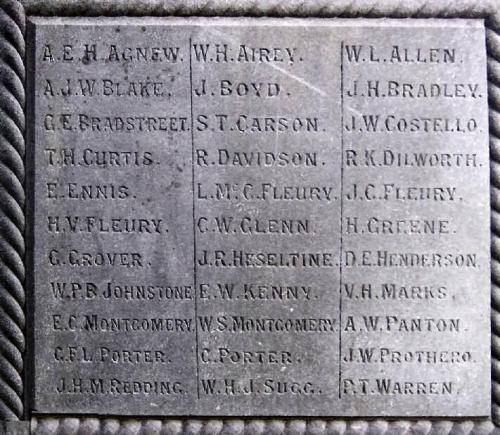 A.E.H. AGNEW. W.H. AIREY. W.L. ALLEN.
A.J.W. BLAKE. J. BOYD. J.H. BRADLEY.
G.E. BRADSTREET. S.T. CARSON. J.W. COSTELLO.
T.H. CURTIS. R. DAVIDSON. R.K. DILWORTH.
E. ENNIS. L. McC. FLEURY. J.C. FLEURY.
H.V. FLEURY. C.W. GLENN. H. GREENE.
G. GROVER. J.R. HESELTINE. D.E. HENDERSON.
W.P.B. JOHNSTONE E.W. KENNY. V.H. MARKS.
E.C. MONTGOMERY. W.S. MONTGOMERY. A.W. PANTON.
G.F.L. PORTER. C. PORTER. J.W. PROTHERO.
J.H.M. REDDING. W.H.J. SUGG. P.T. WARREN.